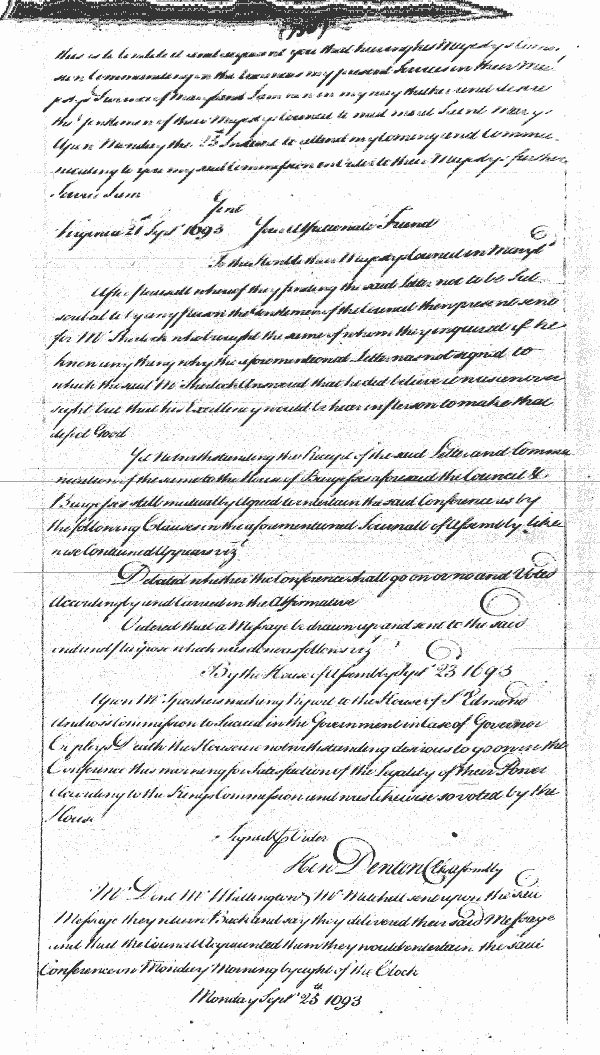 this is to intimate and acquaint you that having his Majestys Comis
sion Commanding on this Occasion my present Service in their Ma
jestys Province of Maryland I am now on my way thither and desire
the Gentlemen of their Majestys Councill to meet me at Saint Marys
Upon Munday the 25th Instant to attend my Coming and Commu-
nicating to you my said Commission in Order to their Majestys further
Service I am
Gent
Virginia 21st Septr 1693 Your Affectionate Friend
To the Honble their Majestys Councill in Maryld
After perusall whereof they finding the said Letter not to be Sub
scribed by any person the Gentlemen of the Councill then present sent
for Mr Sherlock who brought the same of whom they inquired if he
knew any thing why the aforementioned Letter was not signed to
which the said Mr Sherlock Answered that he did believe it was an over
sight but that his Excellency would be here in Person to make that
defect Good
Yet Notwithstanding the Receipt of the said Letter and Commu
nication of the same to the House of Burgesses aforesaid the Council &
Burgesses still mutually Agreed to entertain the said Conference as by
the following Clauses in the aforementioned Journall of Assembly like
wise Contained Appears vizt
Debated whether the Conference shall go on or no and Voted
Accordingly and Carried in the Affirmative
Ordered that a Message be drawn up and sent to the said
end and purpose which was done as follows vizt
By the House of Assembly Septr 23 1693
Upon Mr Speakers making Report to the House of Sr Edmond
Andros's Commission to Succeed in the Government in Case of Governor
Copleys Death the House are notwithstanding desirous to go on in the
Conference this morning for Satisfaction of the Legality of their Power
According to the Kings Commission and was likewise so voted by the
House
Signed p Order
Hen Denton Cl Assembly
Mr Dent Mr Watlington & Mr Mitchell sent upon the said
Message they return Back and say they delivered their said Message
and that the Councill Acquainted them they would entertain the said
Conference on Monday Morning by eight of the Clock
Monday Septr 25th 1693